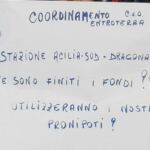 COORDINAMENTO C.d.Q.
ENTROTERRA
STAZIONE ACILIA SUD - DRAGONA
E SONO FINITI I FONDI?
UTILIZZERANNO I NOSTRI
PRONIPOTI?